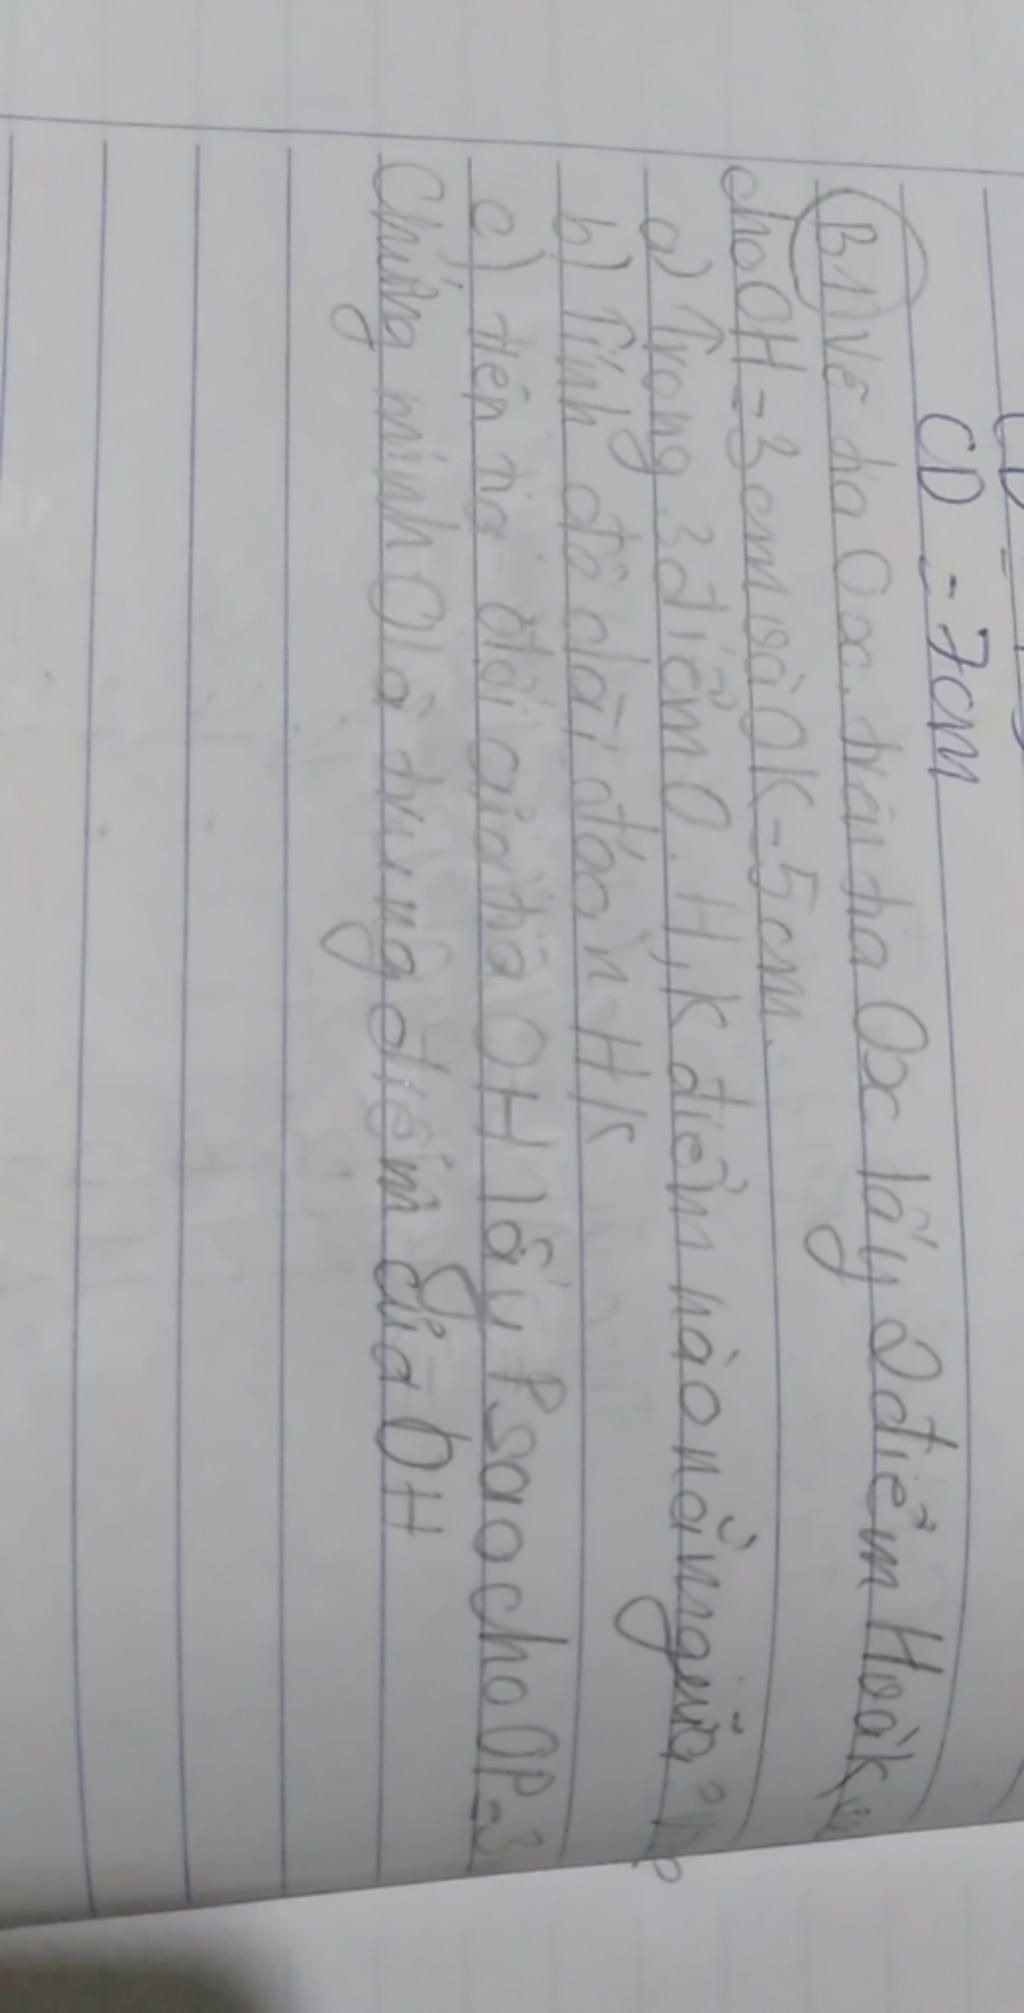 CD = 7cm
B1 Vẽ tia Ox, trên tia Ox lấy 2 điểm H và K
cho OH = 3cm và OK = 5cm.
a) Trong 3 điểm O, H, K điểm nào nằm giữa?
b) Tính độ dài đoạn HK
c) trên tia đối của tia OH lấy P sao cho OP = 3
Chứng minh O là trung điểm của OH